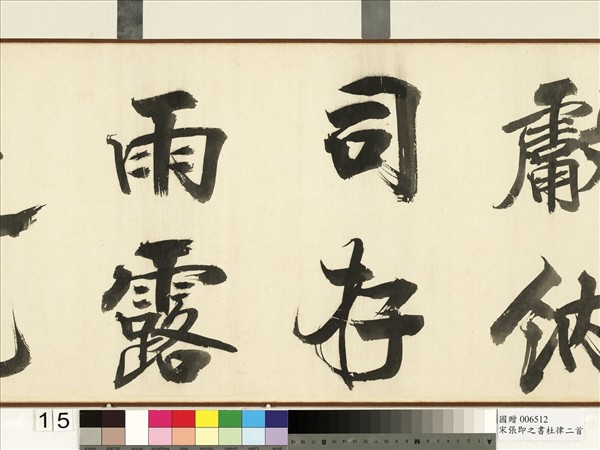 獻納
司存
雨露
15
國贈 006512
宋張即之書杜律二首